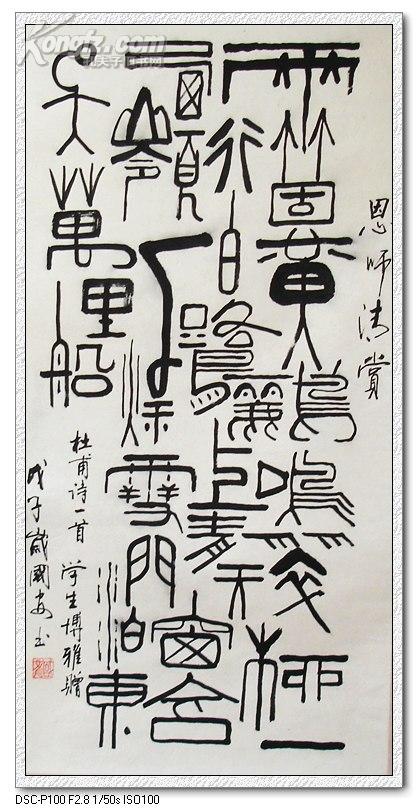 Kongfz.com
孔夫子旧书网
恩师清赏
兩箇黃鸝鳴翠柳一
行白鷺上青天窗含
西嶺千秋雪門泊東
吳萬里船
杜甫诗一首 学生博雅赠
戊子歲國安书
DSC-P100 F2.8 1/50s ISO100